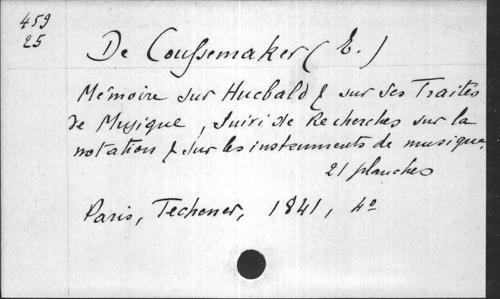 459
25
De Coussemaker (E.)
Mémoire sur Hucbald & sur ses Traités
de Musique, Suivi de Recherches sur la
notation & sur les instruments de musique,
21 planches
Paris, Techener, 1841, 4º